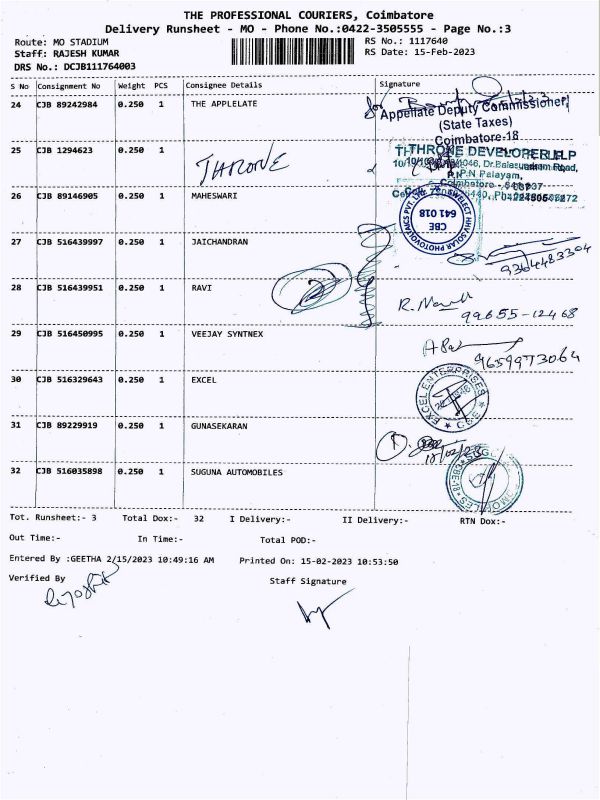 THE PROFESSIONAL COURIERS, Coimbatore
Delivery Runsheet - MO - Phone No.:0422-3505555 - Page No.:3
Route: MO STADIUM RS No.: 1117640
Staff: RAJESH KUMAR RS Date: 15-Feb-2023
DRS No.: DCJB111764003
S No Consignment No Weight PCS Consignee Details Signature
24 CJB 89242984 0.250 1 THE APPLELATE
for
Appellate Deputy Commissioner
(State Taxes)
Coimbatore-18
25 CJB 1294623 0.250 1 THRONE
THRONE DEVELOPER LLP
P.N Palayam,
Coimbatore
26 CJB 89146905 0.250 1 MAHESWARI
SWELECT HHV SOLAR PHOTOVOLTAICS PVT. LTD.
CBE
641 018
27 CJB 516439997 0.250 1 JAICHANDRAN
9364483304
28 CJB 516439951 0.250 1 RAVI
99655-12468
29 CJB 516450995 0.250 1 VEEJAY SYNTNEX
9659973064
30 CJB 516329643 0.250 1 EXCEL
EXCEL ENTERPRISES
31 CJB 89229919 0.250 1 GUNASEKARAN
32 CJB 516035898 0.250 1 SUGUNA AUTOMOBILES
Tot. Runsheet:- 3 Total Dox:- 32 I Delivery:- II Delivery:- RTN Dox:-
Out Time:- In Time:- Total POD:-
Entered By :GEETHA 2/15/2023 10:49:16 AM Printed On: 15-02-2023 10:53:50
Verified By Staff Signature